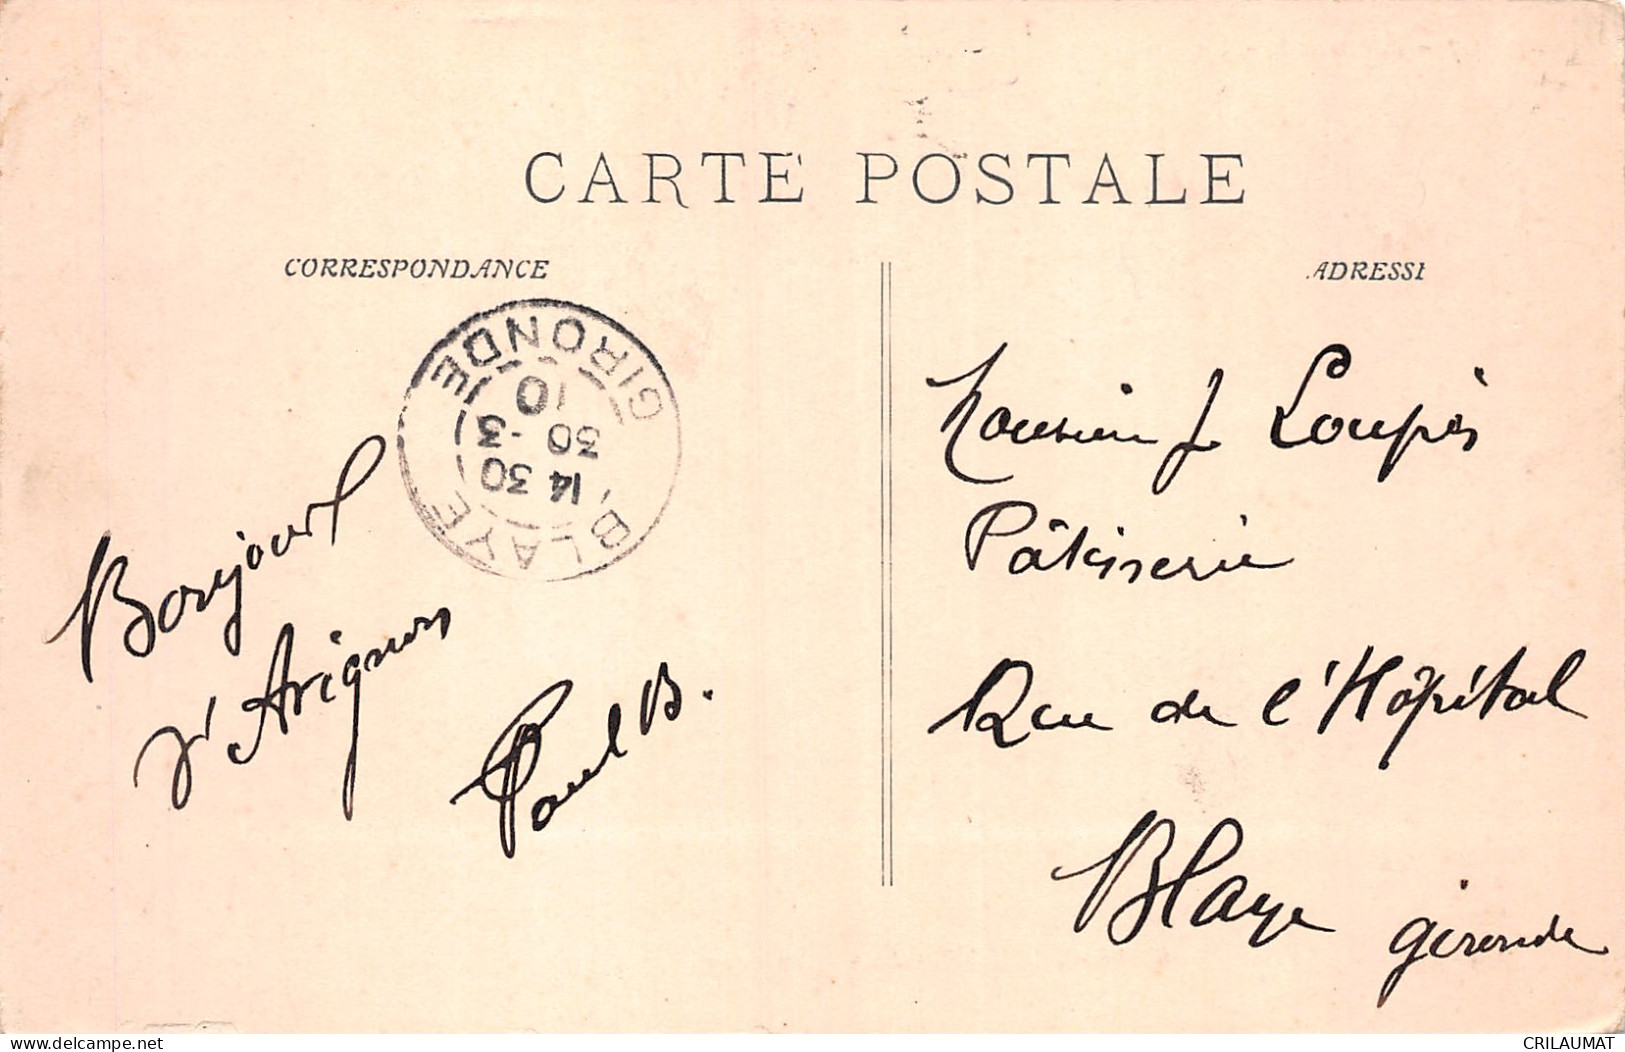 CARTE POSTALE
CORRESPONDANCE
ADRESSE
BLAYE
14 30
30 - 3
10
GIRONDE
Bonjour
d'Avignon
Paul B.
Monsieur J. Loupès
Pâtisserie
Rue de l'Hôpital
Blaye Gironde
www.delcampe.net
CRILAUMAT